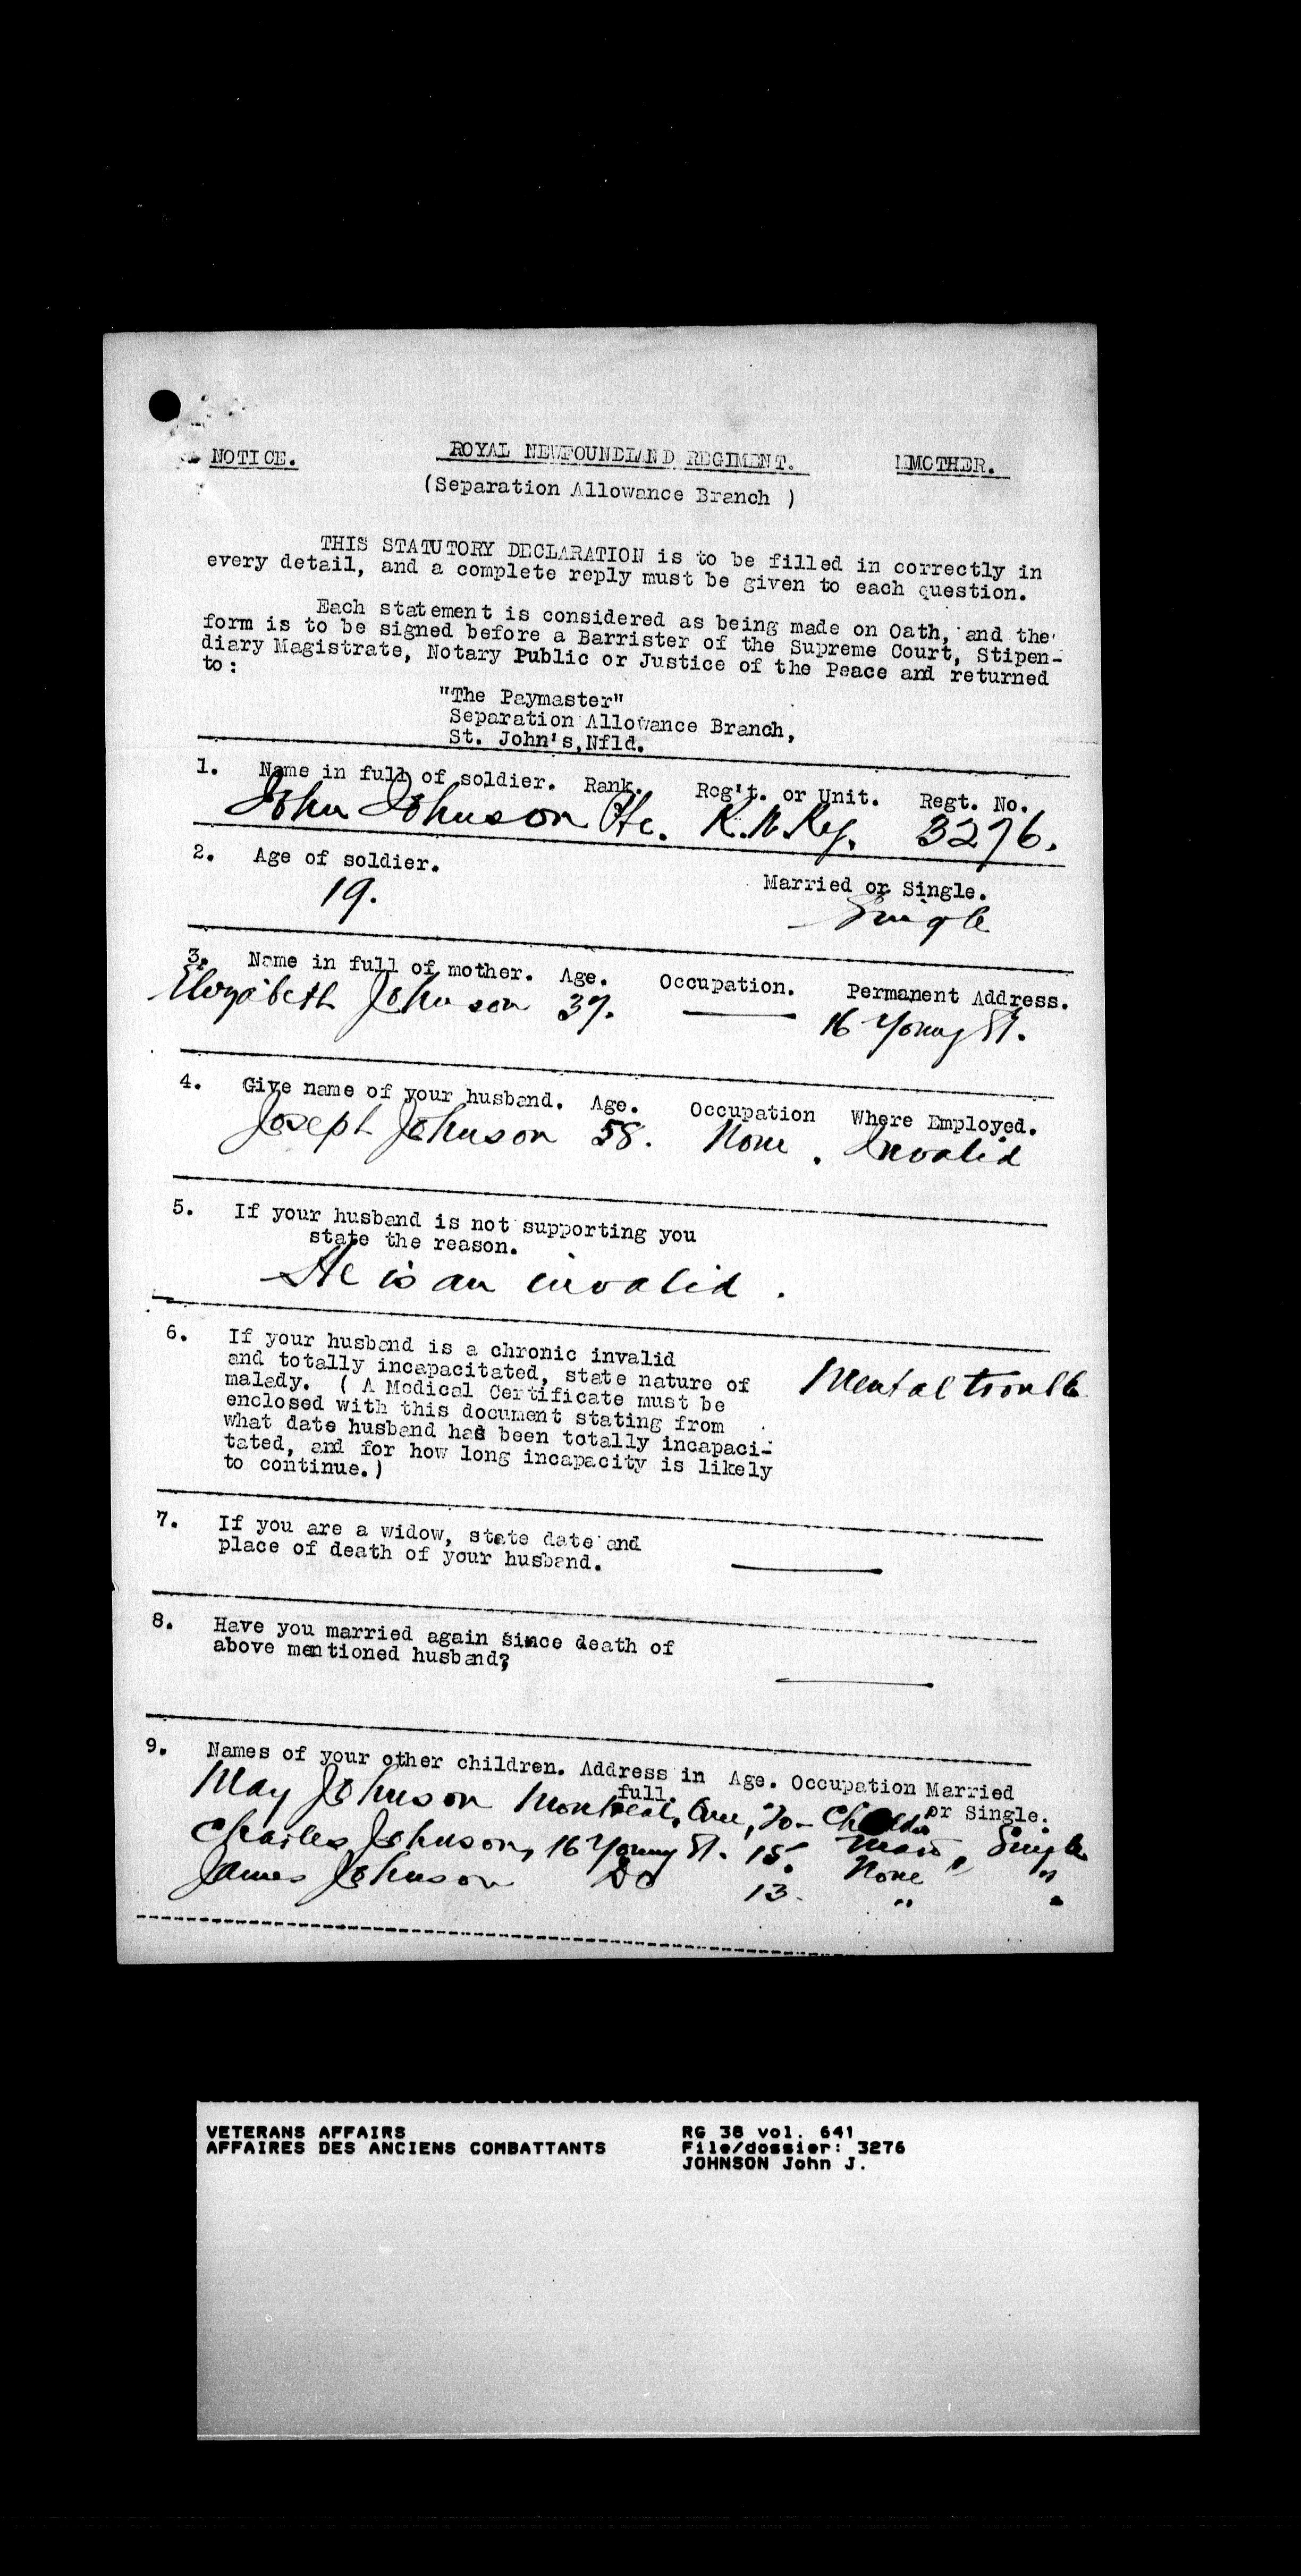 NOTICE. ROYAL NEWFOUNDLAND REGIMENT. MOTHER.
(Separation Allowance Branch )
THIS STATUTORY DECLARATION is to be filled in correctly in
every detail, and a complete reply must be given to each question.
Each statement is considered as being made on Oath, and the
form is to be signed before a Barrister of the Supreme Court, Stipen-
diary Magistrate, Notary Public or Justice of the Peace and returned
to:
"The Paymaster"
Separation Allowance Branch,
St. John's, Nfld.
1. Name in full of soldier. Rank. Reg't. or Unit. Regt. No.
John Johnson Pte. R.N.Reg. 3276.
2. Age of soldier. Married or Single.
19. Single
3. Name in full of mother. Age. Occupation. Permanent Address.
Elizabeth Johnson 39. 16 Young St.
4. Give name of your husband. Age. Occupation Where Employed.
Joseph Johnson 58. None. Invalid
5. If your husband is not supporting you
state the reason.
He is an invalid.
6. If your husband is a chronic invalid
and totally incapacitated, state nature of
malady. ( A Medical Certificate must be
enclosed with this document stating from
what date husband has been totally incapaci-
tated, and for how long incapacity is likely
to continue.)
Mental trouble
7. If you are a widow, state date and
place of death of your husband.
8. Have you married again since death of
above mentioned husband?
9. Names of your other children. Address in Age. Occupation Married
full. or Single.
May Johnson Montreal, 20 Single
Charles Johnson, 16 Young St. 15. None "
James Johnson Do 13. " "
VETERANS AFFAIRS RG 38 vol. 641
AFFAIRES DES ANCIENS COMBATTANTS File/dossier: 3276
JOHNSON John J.